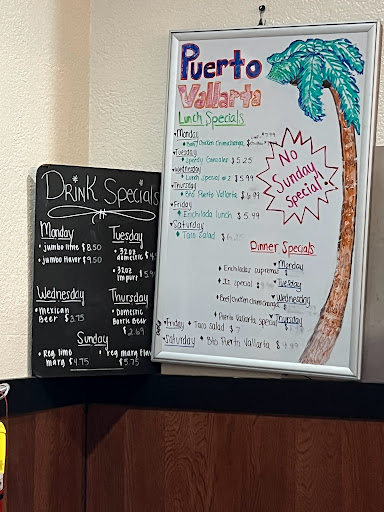 Drink Specials
Monday
• jumbo lime $8.50
• jumbo flavor $9.50
Tuesday
• 32oz domestic
• 32oz import
Wednesday
• Mexican Beer $3.75
Thursday
• Domestic Bottle Beer $2.69
Sunday
• Reg. lime marg $4.75
• reg marg flavor $5.75
Puerto
Vallarta
Lunch Specials
Monday
Beef/Chicken Chimichanga
Tuesday
Speedy Gonzales $5.25
Wednesday
Lunch Special #2 $5.99
Thursday
Bto Puerto Vallarta $6.99
Friday
Enchilada lunch $5.99
Saturday
Taco Salad
No
Sunday
Special!
Dinner Specials
Monday
Enchiladas supremas
Tuesday
Wednesday
Beef/Chicken chimichanga
Thursday
Puerto Vallarta special
Friday • Taco salad $7
Saturday • Bto Puerto Vallarta